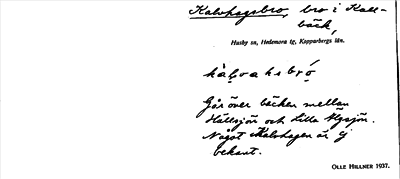 Kalvhagsbro, bro i Kall-
bäck,
Husby sn, Hedemora tg, Kopparbergs län.
kàḷvahsbró
Går över bäcken mellan
Hällsjön och Lilla Älgsjön.
Något Kalvhagen är ej
bekant.
OLLE HILLNER 1937.